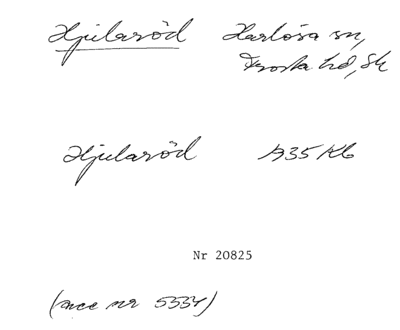 Hjularöd Harlösa sn,
Frosta hd, Sk
Hjularöd 1935 Kb
Nr 20825
(acc nr 5334)